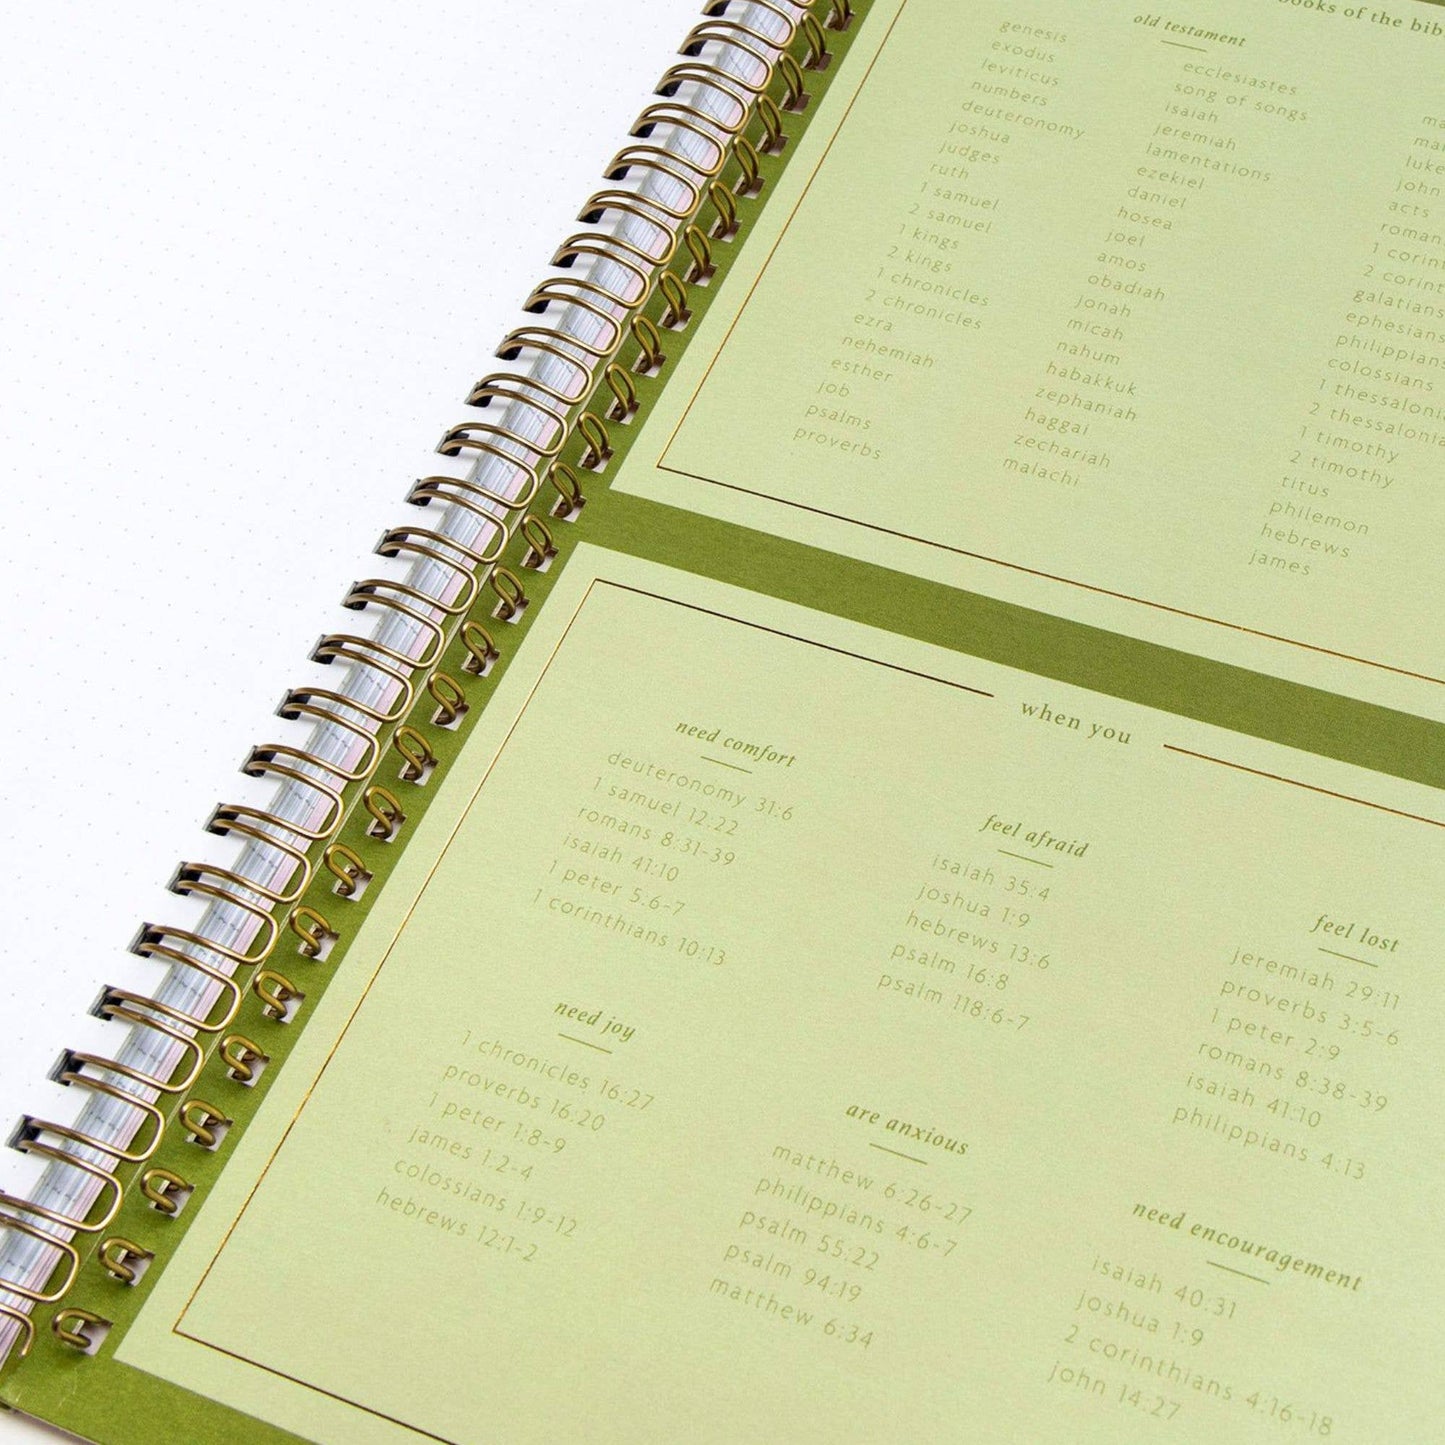 books of the bib
old testament
genesis
exodus
leviticus
numbers
deuteronomy
joshua
judges
ruth
1 samuel
2 samuel
1 kings
2 kings
1 chronicles
2 chronicles
ezra
nehemiah
esther
job
psalms
proverbs
ecclesiastes
song of songs
isaiah
jeremiah
lamentations
ezekiel
daniel
hosea
joel
amos
obadiah
jonah
micah
nahum
habakkuk
zephaniah
haggai
zechariah
malachi
ma
mar
luke
john
acts
roman
1 corint
2 corint
galatians
ephesians
philippians
colossians
1 thessaloni
2 thessalonia
1 timothy
2 timothy
titus
philemon
hebrews
james
when you
need comfort
deuteronomy 31:6
1 samuel 12:22
romans 8:31-39
isaiah 41:10
1 peter 5:6-7
1 corinthians 10:13
feel afraid
isaiah 35:4
joshua 1:9
hebrews 13:6
psalm 16:8
psalm 118:6-7
feel lost
jeremiah 29:11
proverbs 3:5-6
1 peter 2:9
romans 8:38-39
isaiah 41:10
philippians 4:13
need joy
1 chronicles 16:27
proverbs 16:20
1 peter 1:8-9
james 1:2-4
colossians 1:9-12
hebrews 12:1-2
are anxious
matthew 6:26-27
philippians 4:6-7
psalm 55:22
psalm 94:19
matthew 6:34
need encouragement
isaiah 40:31
joshua 1:9
2 corinthians 4:16-18
john 14:27